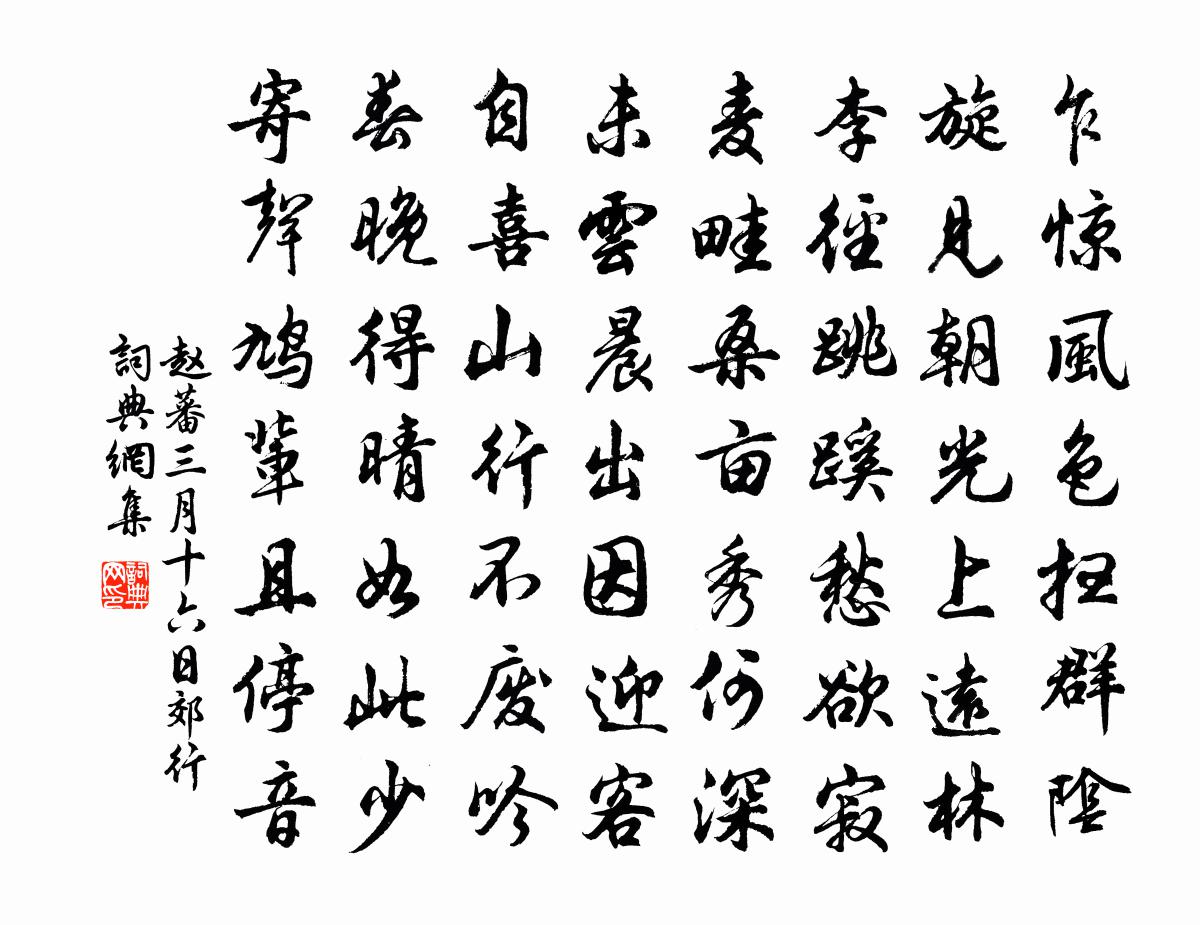 乍惊風色扫群陰
旋見朝光上遠林
李徑跳蹊愁欲寂
麦畦桑亩秀何深
未雲晨出因迎客
自喜山行不废吟
春晚得晴如此少
寄聲鳩輩且停音
赵蕃三月十六日郊行
詞典網集